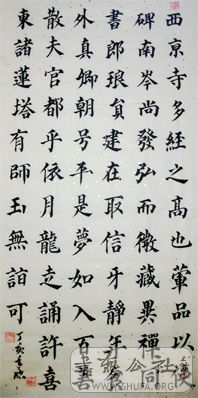 西亰寺多經之髙也葷品以
碑南岑尚發弘而徵藏異禪
書郎琅貟建在取信牙靜年
外真卿朝号平是夢如入百
散夫官都乎依月龍誦許喜
東諸蓮塔有師玉無詣可
丁亥